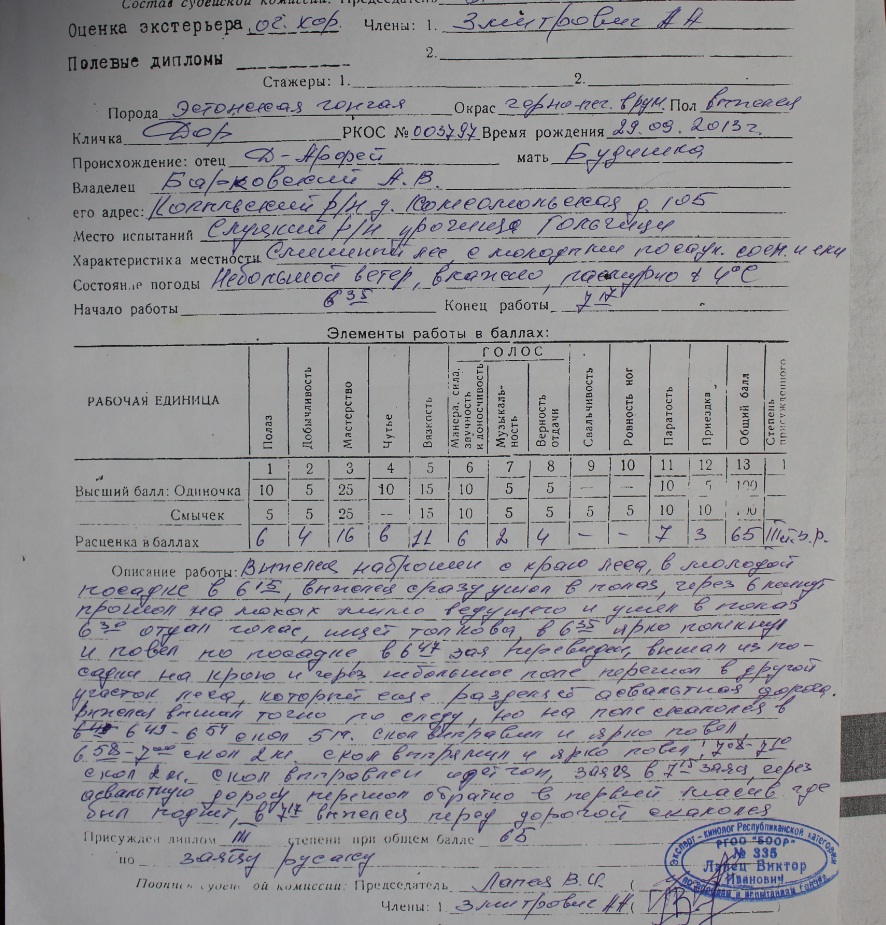 Состав судейской комиссии: Председатель
Оценка экстерьера оч. хор. Члены: 1. Змитрович А А
Полевые дипломы 2.
Стажеры: 1. 2.
Порода Эстонская гончая Окрас черно-пег. в рум. Пол выжлец
Кличка Дор РКОС № 003797 Время рождения 29.09.2013г.
Происхождение: отец Д-Арфей мать Будишка
Владелец Барковский А.В.
его адрес: Копыльский р/н д. Комсомольская д 105
Место испытаний Слуцкий р/н урочище Гольчицы
Характеристика местности Смешанный лес, с молодыми посадк. сосны и ели
Состояние погоды Небольшой ветер, влажно, пасмурно + 4°С
Начало работы 6 35 Конец работы 7 17
Элементы работы в баллах:
РАБОЧАЯ ЕДИНИЦА Полаз Добычливость Мастерство Чутье Вязкость ГОЛОС Манера, сила, звучность и доносчивость Музыкаль-ность Верность отдачи Свальчивость Ровность ног Паратость Приездка Общий балл Степень присужденного
1 2 3 4 5 6 7 8 9 10 11 12 13 1
Высший балл: Одиночка 10 5 25 10 15 10 5 5 — — 10 5 100
Смычек 5 5 25 -- 15 10 5 5 5 5 10 10
Расценка в баллах 6 4 16 6 11 6 2 4 – – 7 3 65 III
Описание работы: Выжлец наброшен с краю леса, в молодой
посадке в 6 15, выжлец сразу ушол в полаз, через 6 минут
прошол на махах мимо ведущего и ушел в полаз
6 30 отдал голос, ищет толково, в 6 35 ярко помкнул
и повел по посадке, в 6 47 заяц перевиден, вышал из по-
садки на краю и через небольшое поле перешол в другой
участок леса, который еще разделяй асвальтная дорога.
выжлец вышал точно по следу, но на поле скололся в
6 49 - 6 54 скол 5 м. скол выправил и ярко повел,
6 58 - 7 00 скол 2 м. скол выпрямил и ярко повел, 7 08 - 7 10
скол 2 м. скол выправлен идет гон, в 7 15 заяц, через
асвальтную дорогу перешол обратно в первый масив где
был поднят, в 7 17 выжлец перед дорогой скололся
Присужден диплом III степени при общем балле 65
по зайцу русаку
Подпись судейской комиссии: Председатель Лапец В.И. (
Члены: 1. Змитрович АА (
Эксперт - кинолог Республиканской категории
РГОО "БООР"
№ 335
Лапец Виктор
Иванович
по породам и испытаниям гончих